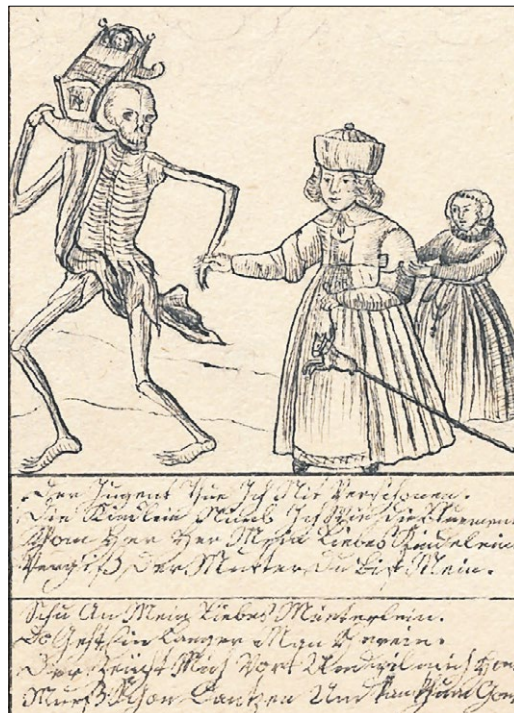 Der Jugent thue Ich Nit Verschonen.
Die Kindlein Nimb Ich Wie die Bluemen
Khom Her Her Mein liebes Kindelein
Vergiß der Mutter Du bist Mein.
Schu An Mein liebes Müeterlein.
Do Geht Ein langer Man herein.
Der Zeücht Mich Fort Und wil mich hon
Mueß Schon Tantzen Und kan